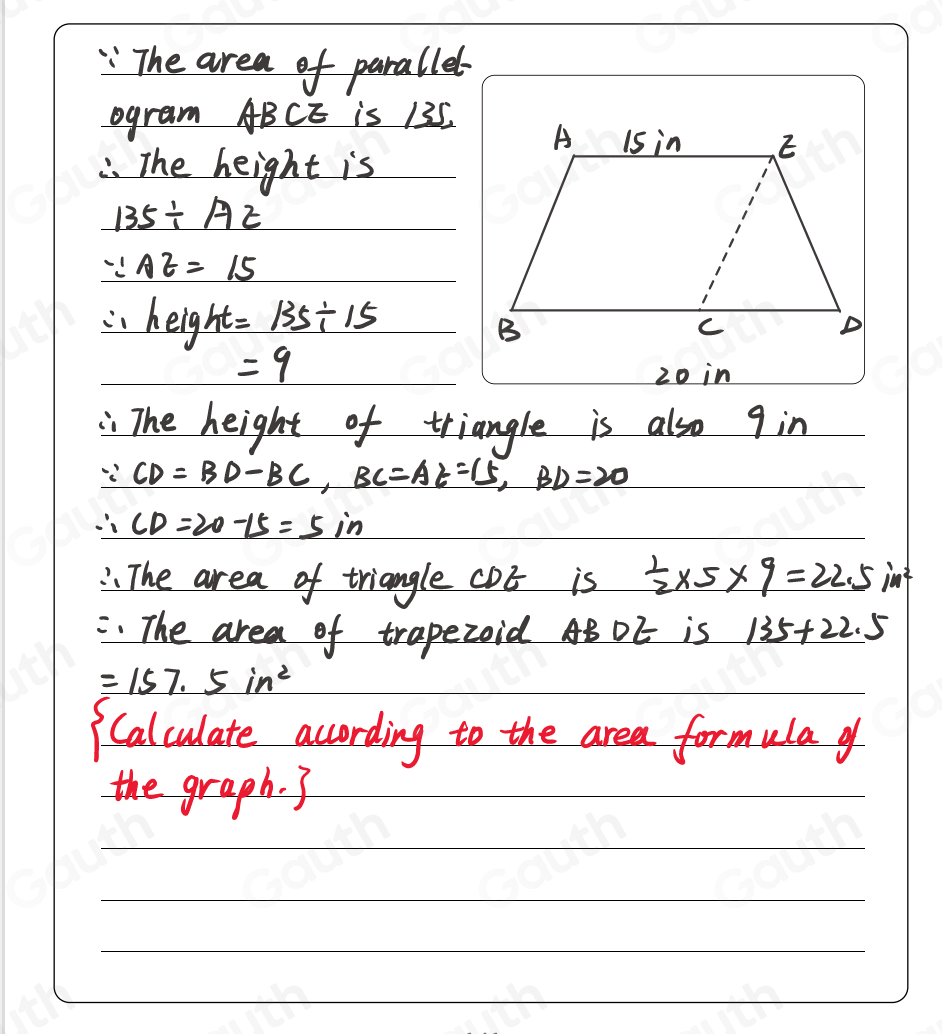 ∵ The area of parallel-
ogram ABCE is 135.
∴ The height is
135 ÷ AE
∵ AE = 15
∴ height = 135 ÷ 15
= 9
A 15 in E
B C D
20 in
∴ The height of triangle is also 9 in
∵ CD = BD - BC, BC = AE = 15, BD = 20
∴ CD = 20 - 15 = 5 in
∴ The area of triangle CDE is 1/2 × 5 × 9 = 22.5 in²
∴ The area of trapezoid ABDE is 135 + 22.5
= 157.5 in²
{Calculate according to the area formula of
the graph.}